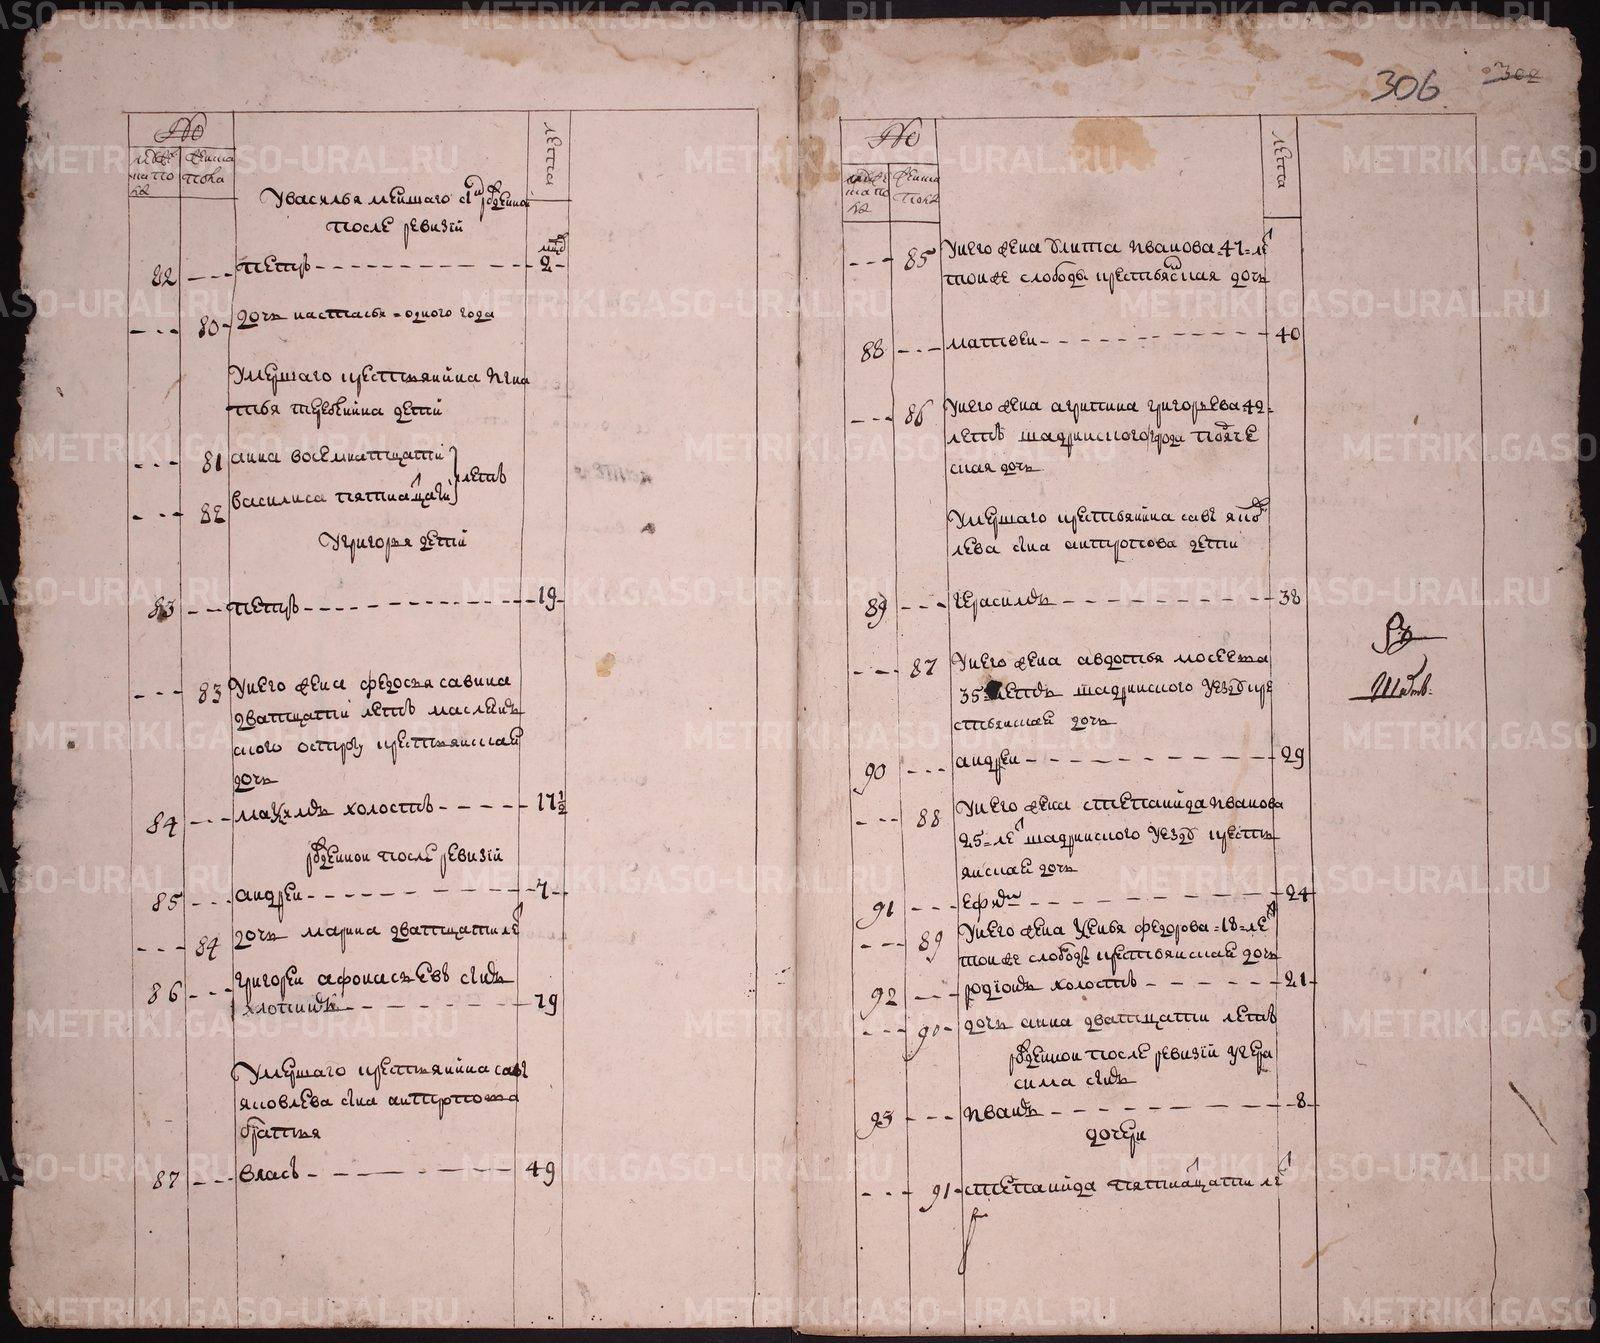 306
302
№
мужеска полу
женска полу
лета
У василья меншаго снъ рожденой
после ревизiй
мцв
82 --- петръ 2
--- 80 дочь настасья - одного года
Умершаго крестьянина игна
тья теребнина детей
--- 81 анна восемнатцати
летъ
--- 82 василиса пятнацати
У григорья детей
83 --- петръ 19
--- 83 У него жена федосья савина
дватцати летъ масленъ
ского острогу крестьянская
дочь
84 --- максимъ холостъ 17½
рожденной после ревизiй
85 --- андреи 7
--- 84 дочь марина дватцати ле
86 --- григореи афонасьевъ снъ
19
Умершаго крестьянина
яковлева сна антропова
братья
87 --- власъ 49
№
мужеска полу
женска полу
лета
--- 85 У него жена улита иванова 47 ле
тоиже слободы крестьянская дочь
88 --- матвеи 40
--- 86 У него жена агрипина григорьева 42
летъ шадринского города
ская дочь
Умершаго крестьянина яков
лева сна антропова детей
89 --- герасимъ 38
--- 87 У него жена авдотья мосеева
35 летъ шадринского уезду кре
стьянская дочь
90 --- андреи 29
--- 88 У него жена степанида иванова
25 ле шадринского уезду кресть
янская дочь
91 --- ефимъ 24
--- 89 У него жена федорова 18 ле
тоиже слободы крестьянская дочь
92 --- родiонъ холостъ 21
--- 90 дочь анна дватцати летъ
рожденной после ревизiй у гера
сима снъ
93 --- иванъ 8
дочери
--- 91 степанида пятнацати ле
METRIKI.GASO-URAL.RU